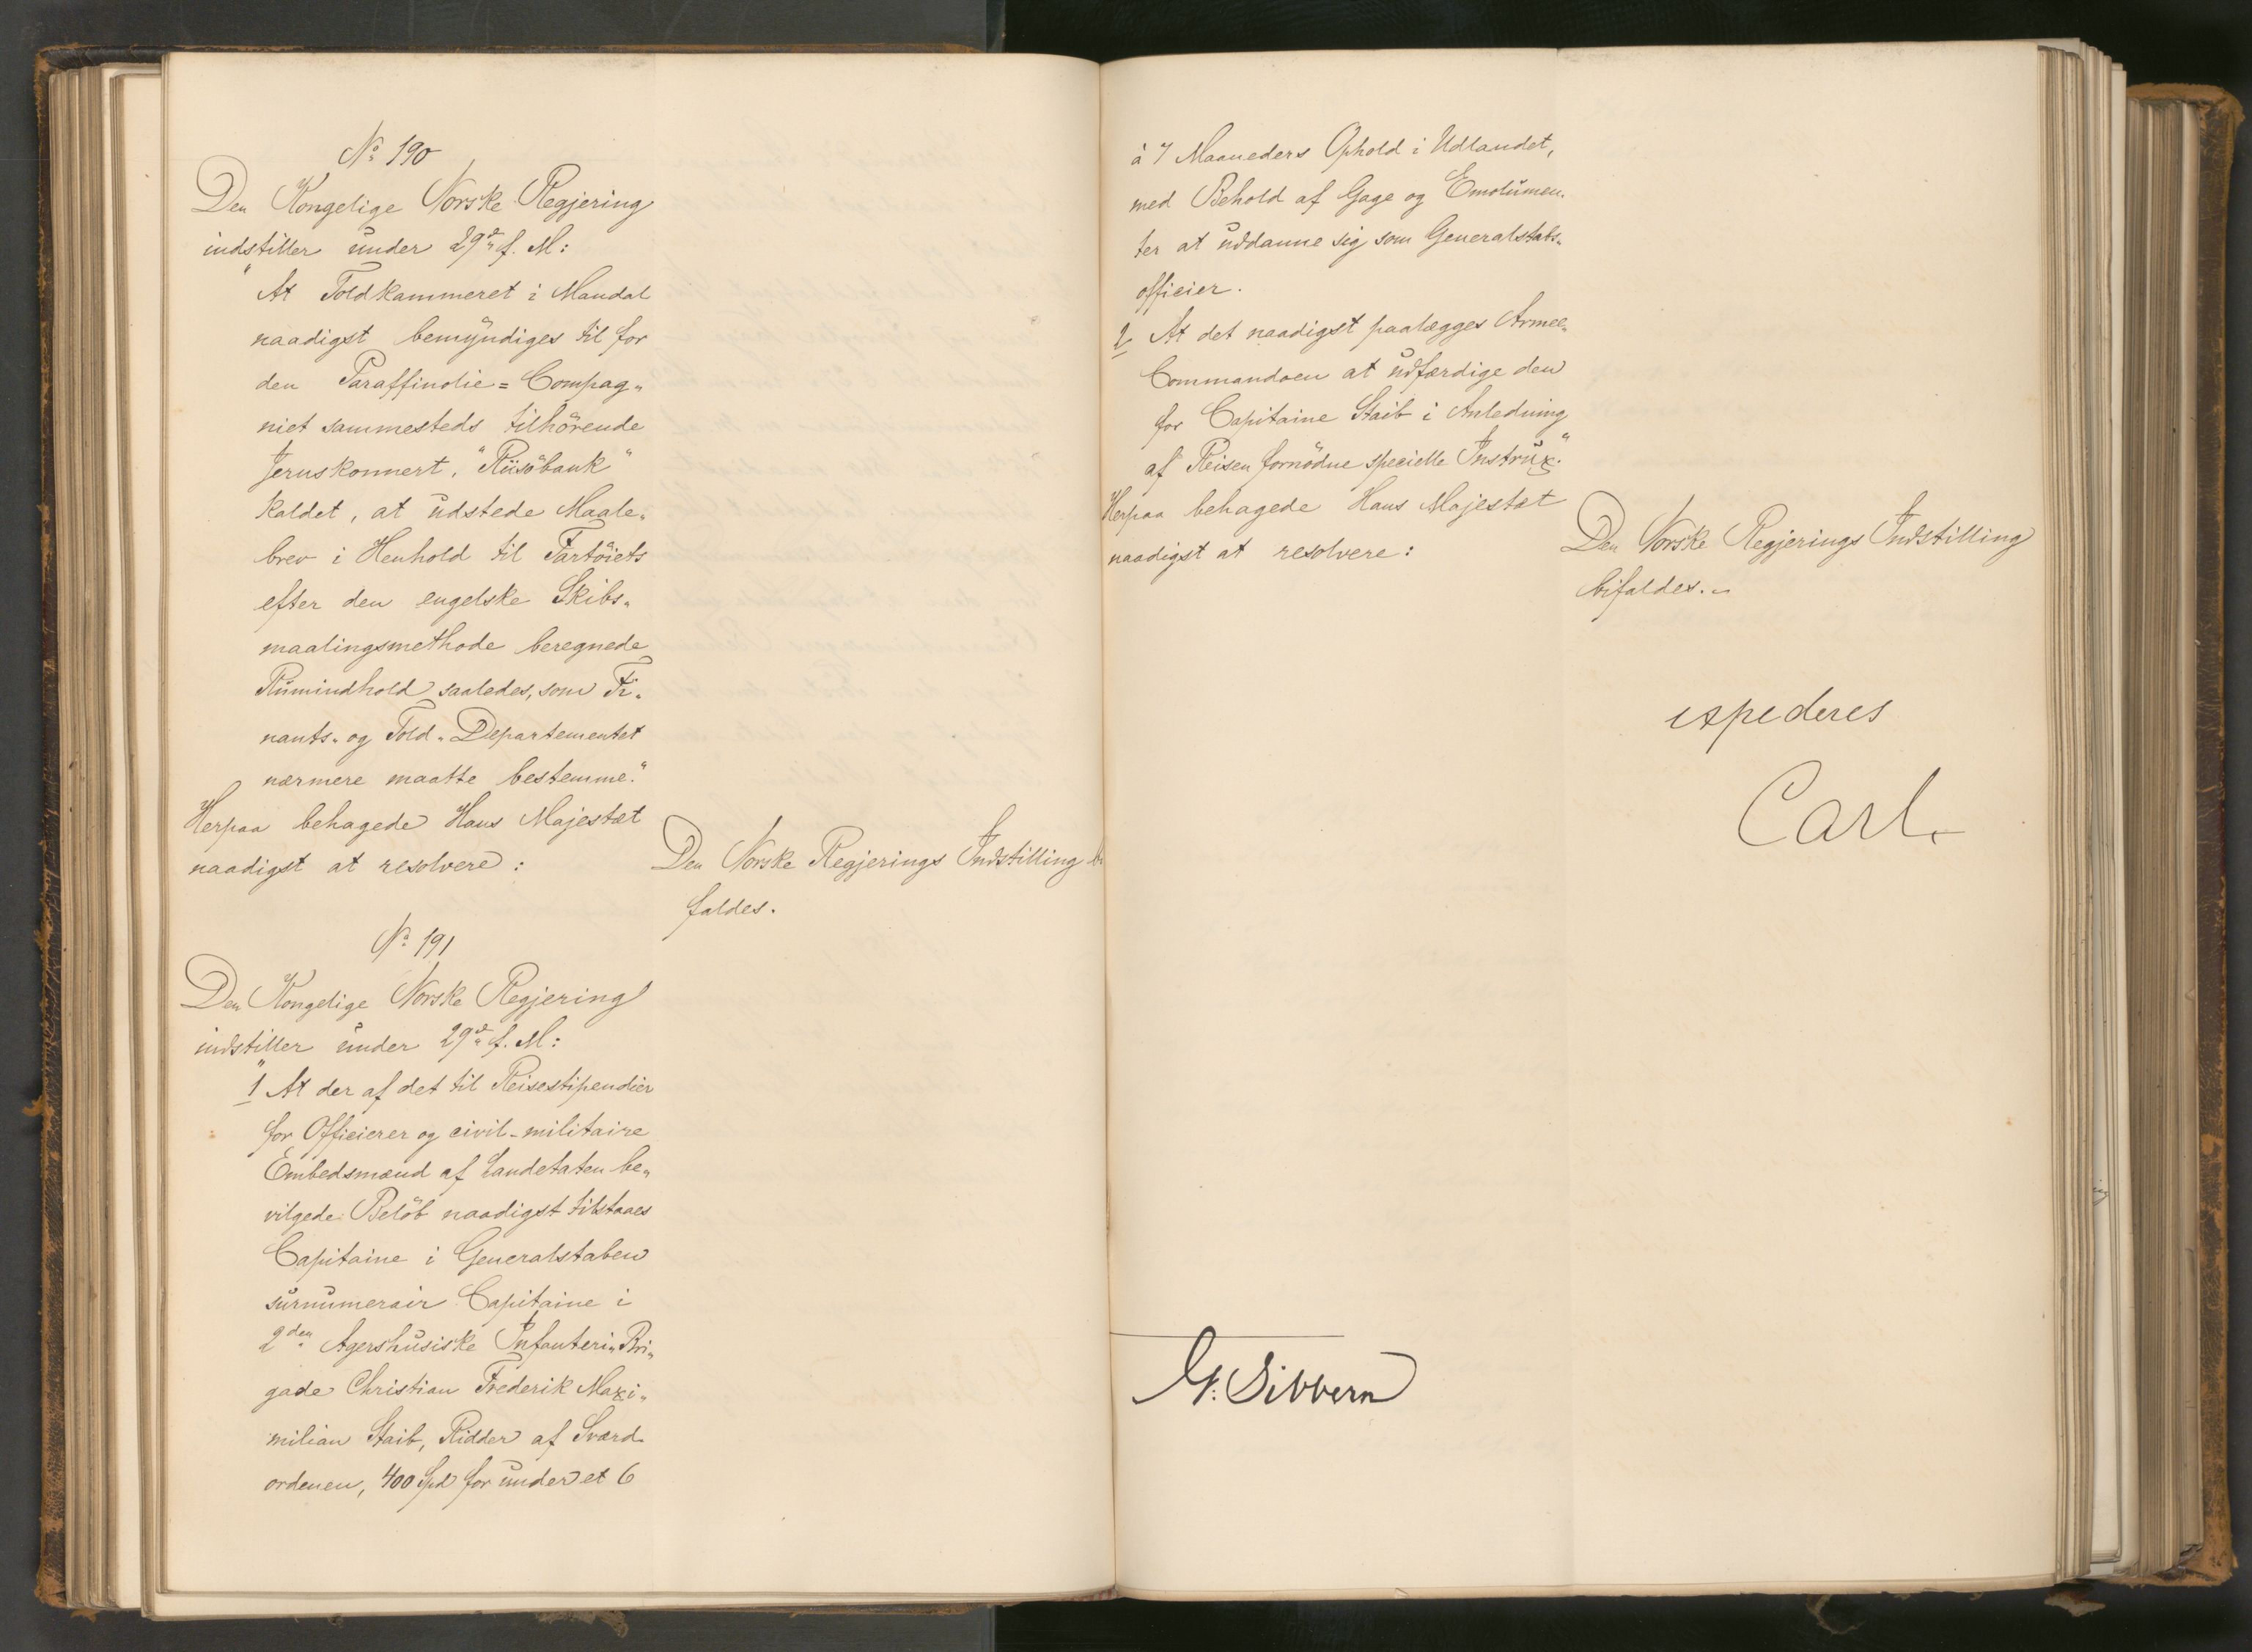 No 190
Den Kongelige Norske Regjering
indstiller under 29de f. M:
"At Toldkammeret i Mandal
naadigst bemyndiges til for
den Paraffinolie=Compag-
niet sammesteds tilhörende
Jernskonnert, "Riisöbank"
kaldet, at udstede Maale-
brev i Henhold til Fartöiets
efter den engelske Skibs-
maalingsmethode beregnede
Rumindhold saaledes, som Fi-
nants- og Told-Departementet
nærmere maatte bestemme."
Herpaa behagede Hans Majestæt
naadigst at resolvere:
Den Norske Regjerings Indstilling bi
faldes.
No 191
Den Kongelige Norske Regjering
indstiller under 29de f. M:
"1 At der af det til Reisestipendier
for Officierer og civil-militaire
Embedsmænd af Landetaten be-
vilgede Belöb naadigst tilstaaes
Capitaine i Generalstaben
surnumerair Capitaine i
2den Agershusiske Infanteri-Bri-
gade Christian Frederik Maxi-
milian Staib, Ridder af Sværd-
ordenen, 400 Spd for under et 6
à 7 Maaneders Ophold i Udlandet,
med Behold af Gage og Emolumen-
ter at uddanne sig som Generalstabs-
officier.
2 At det naadigst paalægges Armee-
Commandoen at udfærdige den
for Capitaine Staib i Anledning
af Reisen fornödne specielle Instrux."
Herpaa behagede Hans Majestæt
naadigst at resolvere:
Den Norske Regjerings Indstilling
bifaldes.-
expederes
Carl.
G. Sibbern